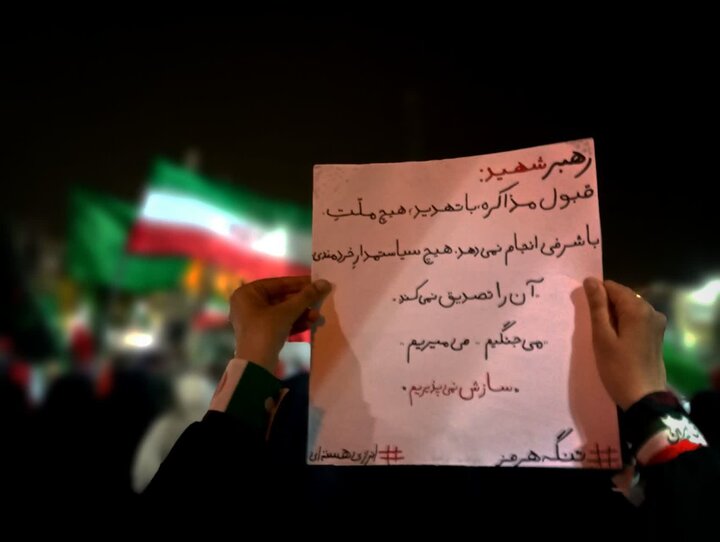 رهبر شهید:
قبول مذاکره، با تهدید، هیچ ملّتِ
باشرفی انجام نمی‌دهد. هیچ سیاستمدارِ خردمندی
آن را تصدیق نمی‌کند.
می‌جنگیم - می‌میریم
سازش نمی‌پذیریم.
#تنگه هرمز #انرژی هسته‌ای
ایران